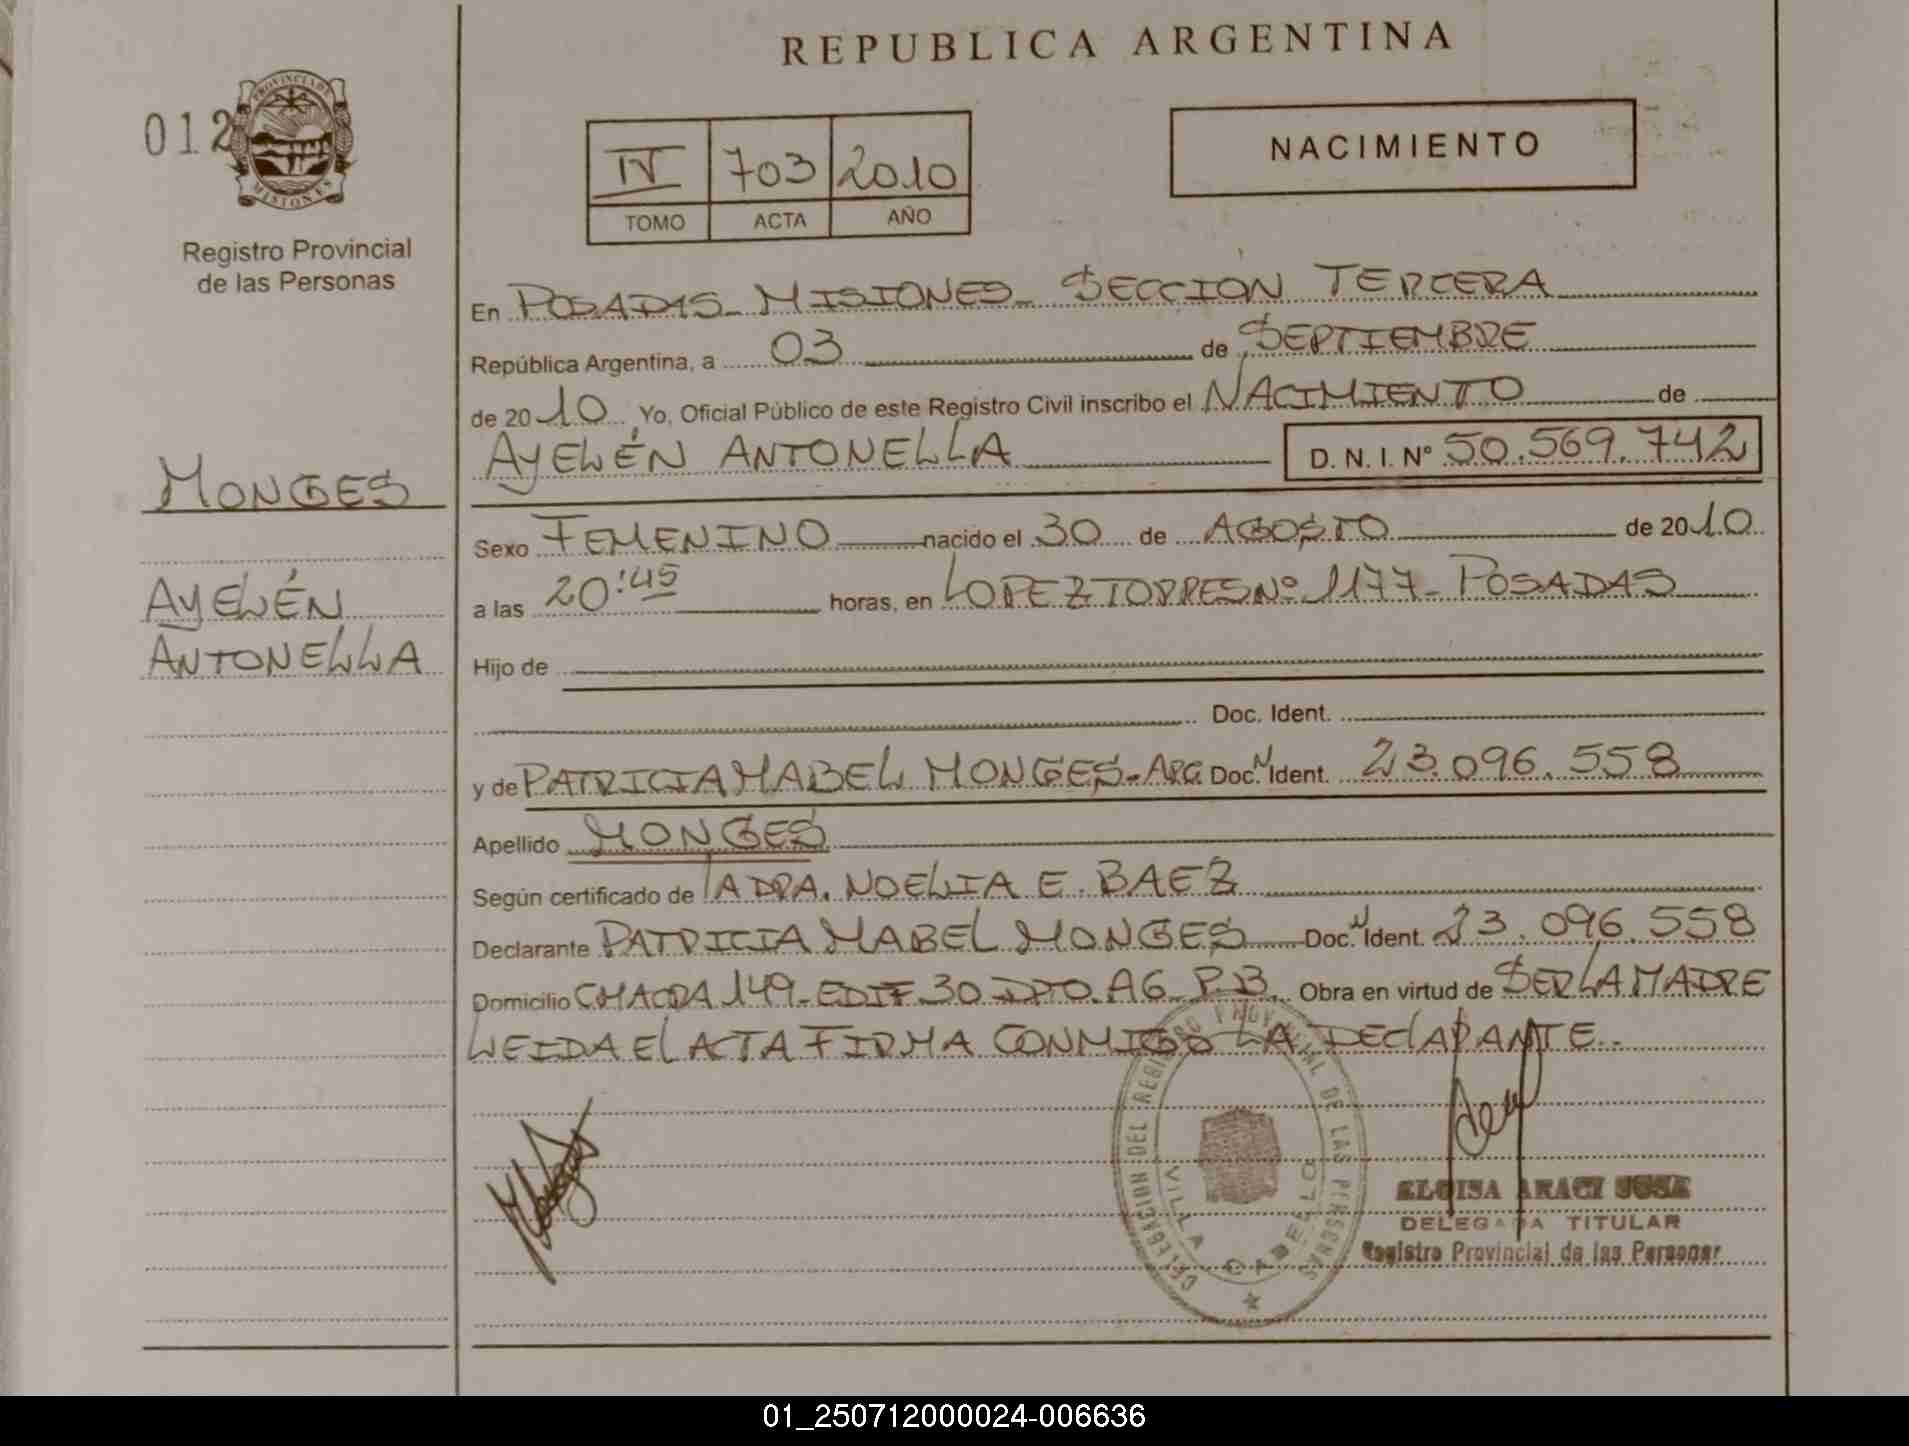 REPUBLICA ARGENTINA
012
PROVINCIA DE MISIONES
Registro Provincial
de las Personas
IV 703 2010
TOMO ACTA AÑO
NACIMIENTO
En POSADAS - MISIONES - SECCION TERCERA
República Argentina, a 03 de SEPTIEMBRE
de 2010. Yo, Oficial Público de este Registro Civil inscribo el NACIMIENTO de
AYELÉN ANTONELLA D. N. I. N° 50.569.742
MONGES
AYELÉN
ANTONELLA
Sexo FEMENINO nacido el 30 de AGOSTO de 2010
a las 20:45 horas, en LOPEZ TORRES Nº 1177 - POSADAS
Hijo de
Doc. Ident.
y de PATRICIA MABEL MONGES - ARG. Doc. N Ident. 23.096.558
Apellido MONGES
Según certificado de LA DRA. NOELIA E. BAEZ
Declarante PATRICIA MABEL MONGES Doc. N Ident. 23.096.558
Domicilio CHACRA 149 - EDIF 30 - DPTO. A6 P.B. Obra en virtud de SER LA MADRE
LEIDA EL ACTA FIRMA CONMIGO LA DECLARANTE.
Monges
DELEGACION DEL REGISTRO PROVINCIAL DE LAS PERSONAS
VILLA CABELLO
ELOISA ARACI JOSE
DELEGADA TITULAR
Registro Provincial de las Personas
01_250712000024-006636